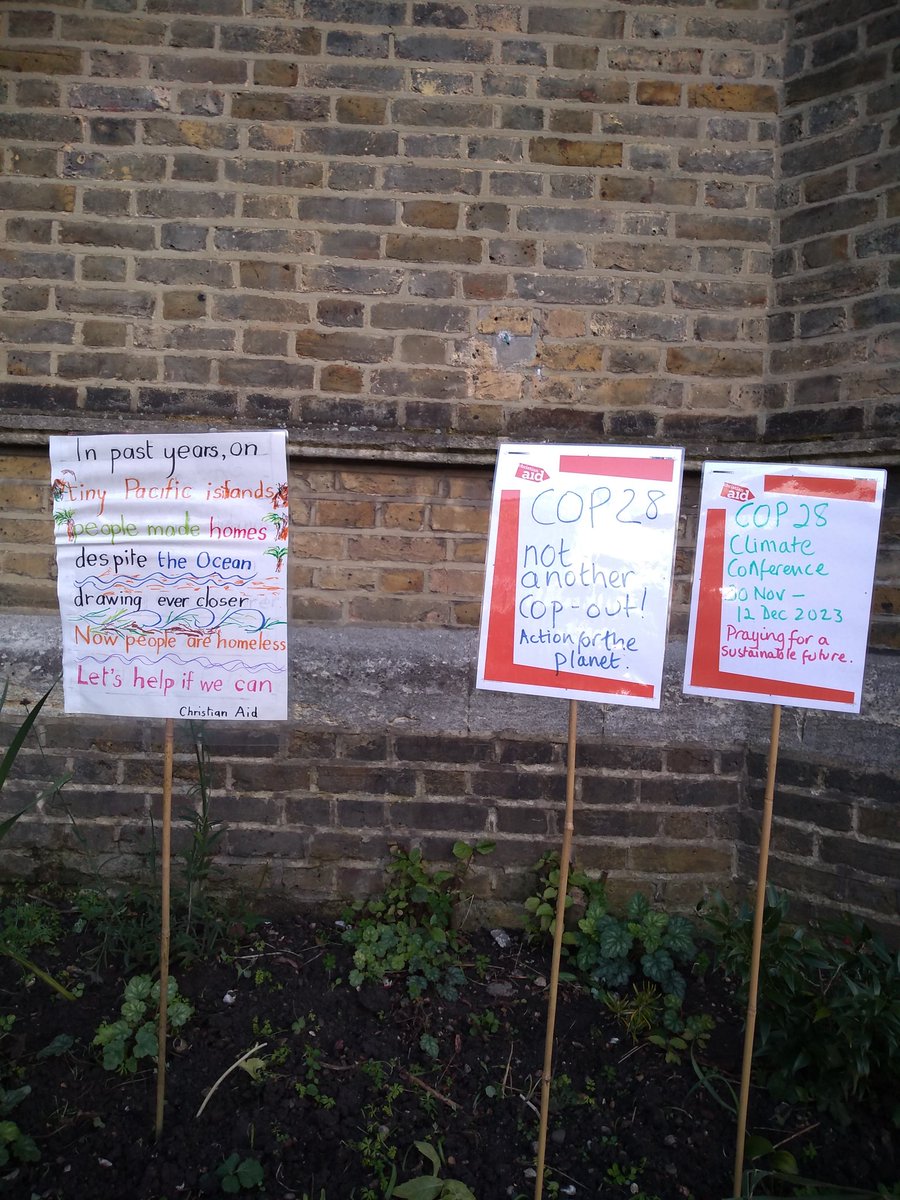 In past years, on
tiny Pacific islands
people made homes
despite the Ocean
drawing ever closer
Now people are homeless
Let's help if we can
Christian Aid
christian
aid
COP28
not
another
COP-out!
Action for the
planet.
christian
aid
COP 28
Climate
Conference
30 Nov –
12 Dec 2023
Praying for a
sustainable future.